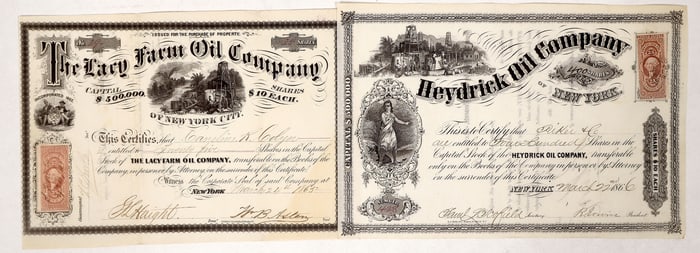 ISSUED FOR THE PURCHASE OF PROPERTY.
The Lacy Farm Oil Company
CAPITAL $500,000.
SHARES $10 EACH.
OF NEW YORK CITY.
This Certifies that Caroline
entitled to Shares in the Capital
Stock of THE LACY FARM OIL COMPANY, transferable on the Books of the
Company, in person or by Attorney, on the surrender of this Certificate.
Witness the Corporate Seal of said Company at
NEW YORK March 1865
Haight W. B.
Heydrick Oil Company
400 SHARES
OF NEW YORK.
CAPITAL $500,000.
This is to Certify that & Co
are entitled to Four Hundred Shares in the
Capital Stock of the HEYDRICK OIL COMPANY, transferable
only on the Books of the Company in person or by Attorney
on the surrender of this Certificate.
NEW YORK, March 22 1866
SHARES $10 EACH
Scofield Secretary President